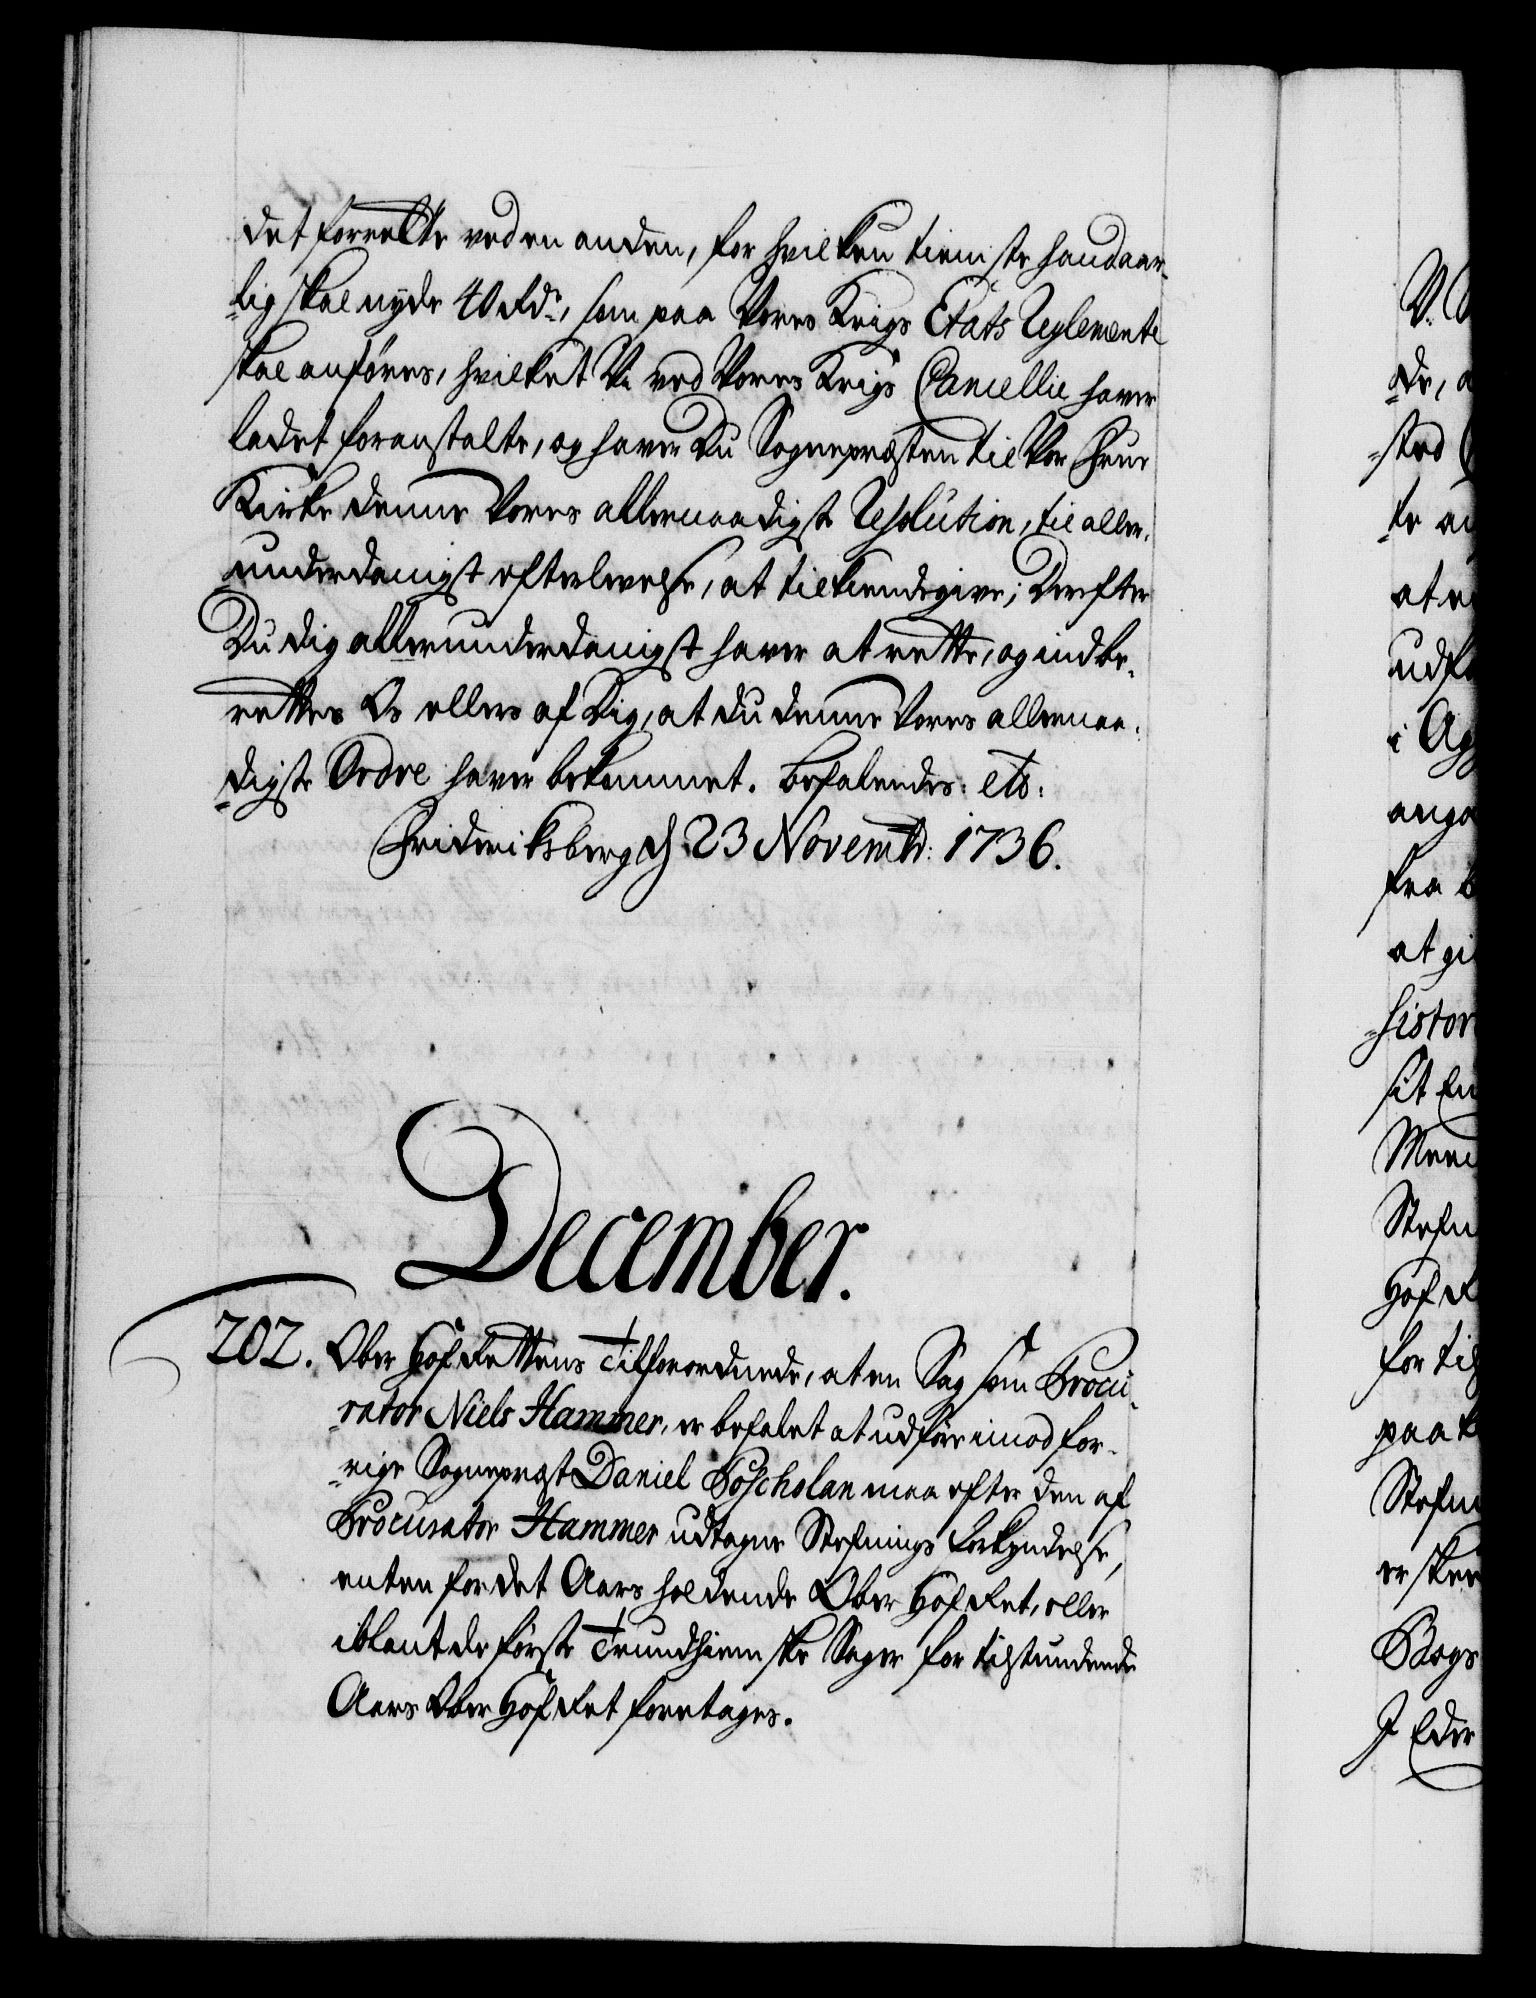 det forrette ved en anden, for hvilken tieniste hand aar-
lig skal nyde 40 Rdr., som paa Vores Krigs Etats Reglemente
skal anføres, hvilket Vi ved Vores Krigs Cancellie haver
ladet foranstalte, og haver Du Sognepræsten til Vor Frue
Kirke denne Vores allernaadigste Resolution, til aller-
underdanigst efterlevelse, at tilkiendegive; Derefter
Du dig allerunderdanigst haver at rette, og indbe-
rettes Os ellers af Dig, at du denne Vores allernaa-
digste Ordre haver bekommet. Befalendes: etc:
Frideriksberg d 23 Novembr: 1736.
December.
202. Ober Hof Rettens Tilforordnede, at en Sag som Procu-
rator Niels Hammer, er befalet at udføre imod for-
rige Sognepræst Daniel Poscholan maa efter den af
Procurator Hammer udtagne Stefnings forkyndelse,
enten for det Aars holdende Ober Hof Ret, eller
iblant de første Trundhiemske Sager for tilstundende
Aars Ober Hof Ret foretages.
V.
de, a
sted
te a
at
udf
i Ag
anga
fra b
at gi
histor
sit En
Meen
Stefn
Hof R
for til
paa
Stefn
er sk
Bogs
I Eder